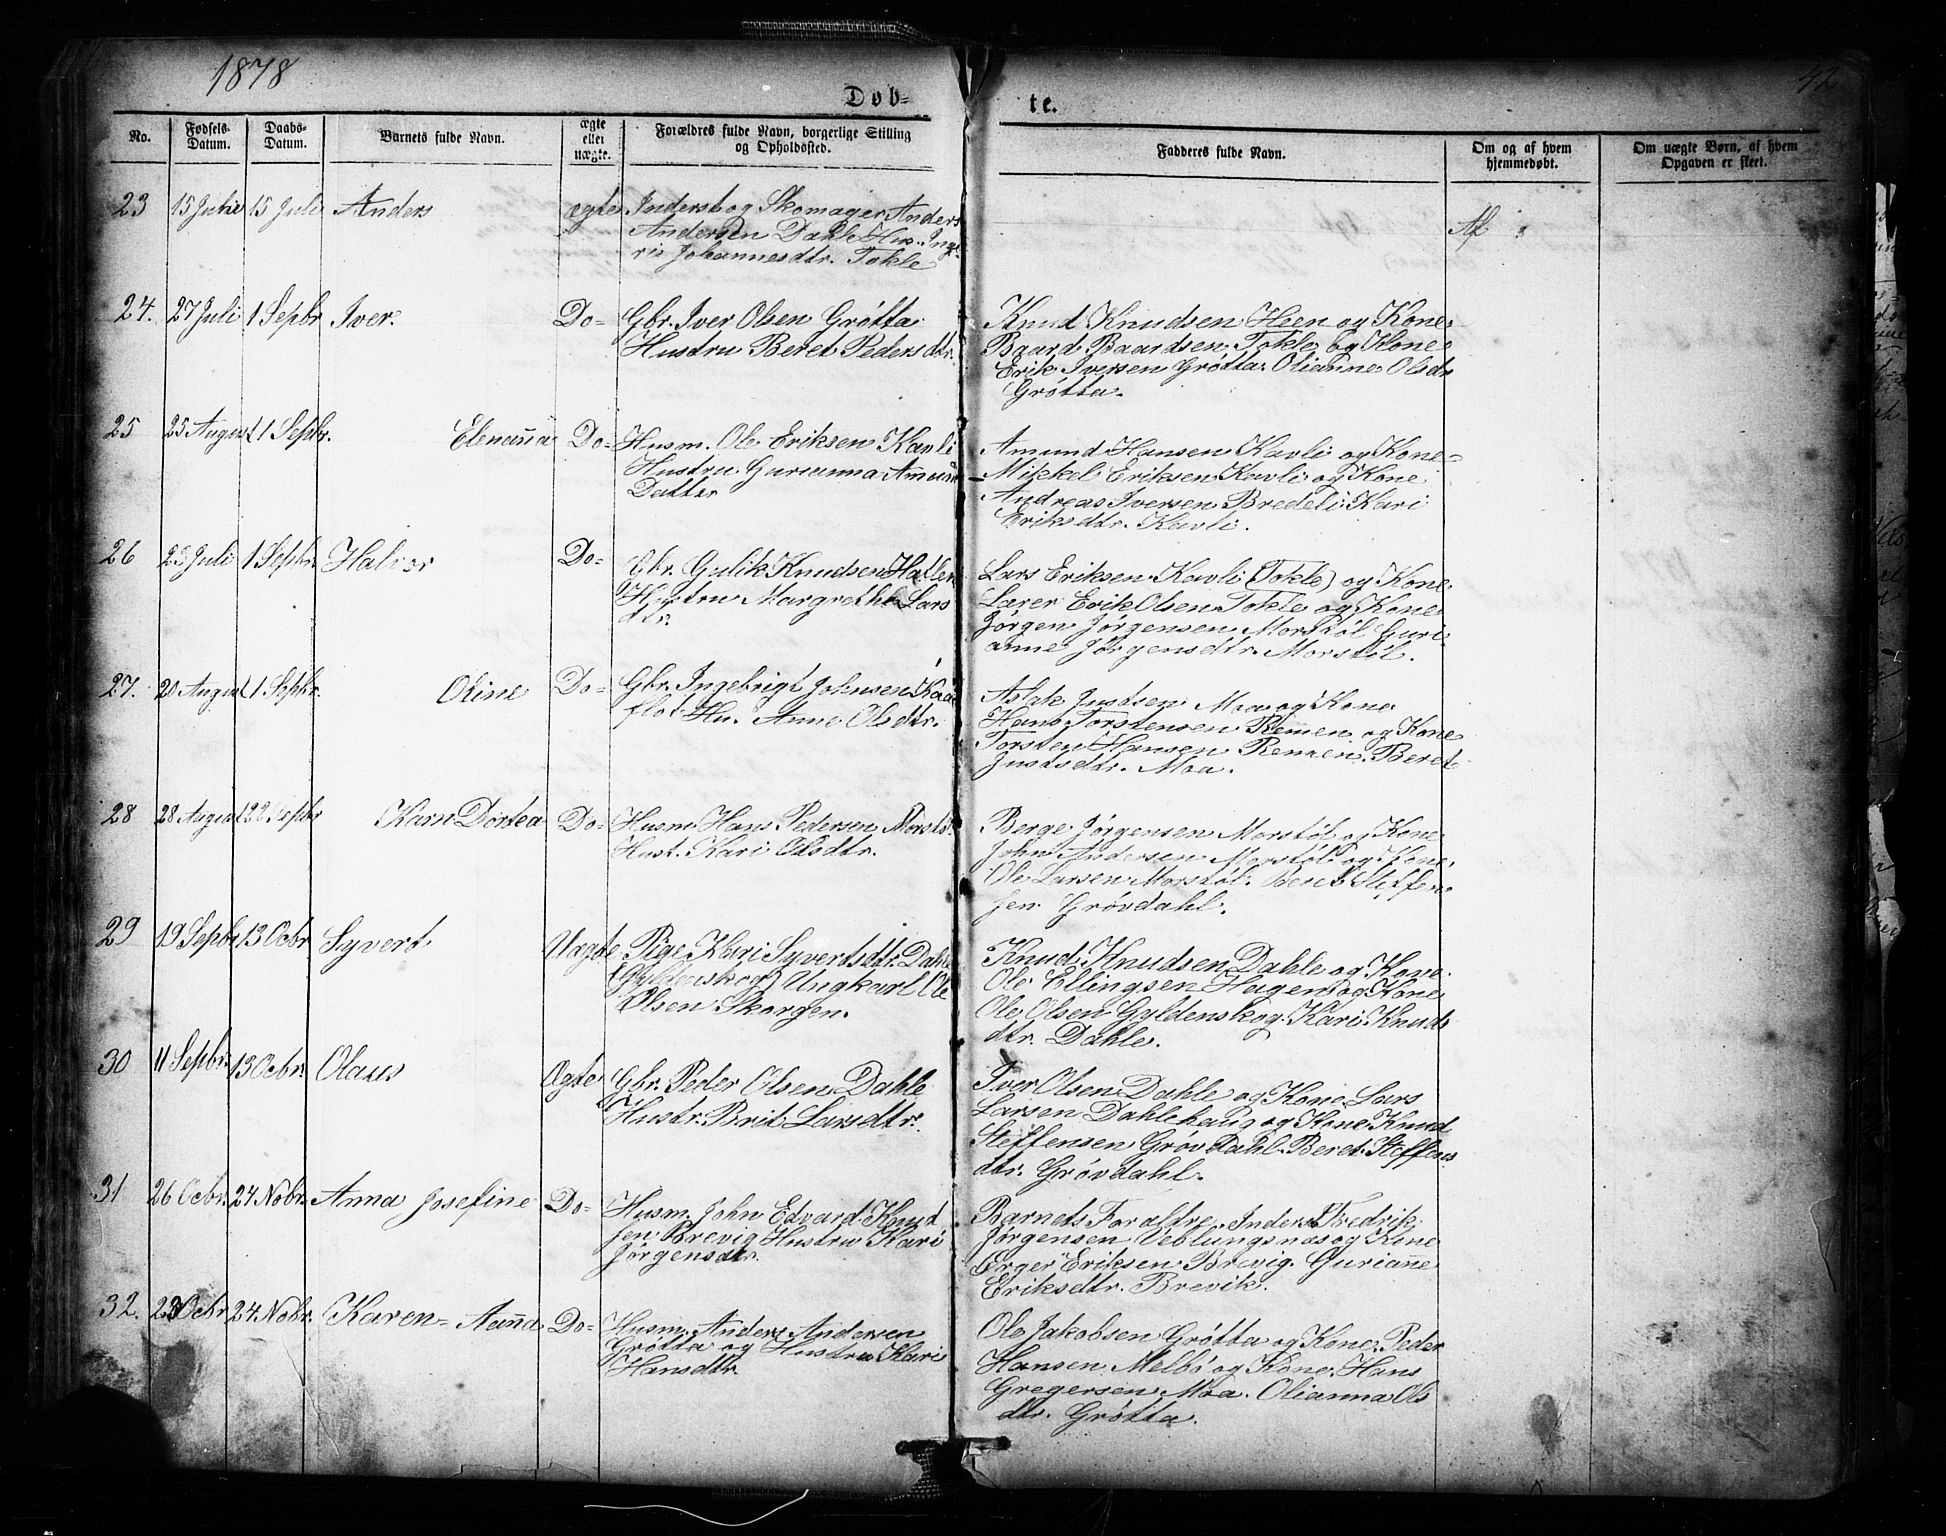 1878
42
Døb=
te.
No.
Fødsels-
Datum.
Daabs-
Datum.
Barnets fulde Navn.
ægte
eller
uægte.
Forældres fulde Navn, borgerlige Stilling
og Opholdssted.
Fadderes fulde Navn.
Om og af hvem
hjemmedøbt.
Om uægte Børn, af hvem
Opgaven er skeet.
23 15 Julie 15 Juli Anders ægte Inderst og Skomager Anders
Andersen Dahle Hus. Inge
ris Johannesdtr. Tokle
Af
24. 27 Juli 1 Sepbr Iver. Do= Gbr. Iver Olsen Grøtta
Hustru Beret Pedersdtr.
Knud Knudsen Heen og Kone
Baard Baardsen Tokle og Kone
Erik Iversen Grøtta. Olianne Olsdtr
Grøtta.
25 25 August 1 Sepbr. Elenanna Do= Husm. Ole Eriksen Kavli
Hustru Gurianna Amund
Datter
Amund Hansen Kavli og Kone=
Mikkel Eriksen Kavli og Kone
Andreas Iversen Bredeli Kari
Eriksdtr. Kavli.
26 23 Juli 1 Sepbr. Halvor Do= Gbr. Gulik Knudsen Hatlen
Hustru Margrethe Lars
dtr.
Lars Eriksen Kavli (Tokle) og Kone
Lærer Erik Olsen Tokle og Kone
Jørgen Jørgensen Morstøl Guri
anne Jørgensdtr. Morstøl.
27. 20 August 1 Sepbr. Oline Do= Gbr. Ingebrigt Johnsen
flot Hu. Anne Olsdtr.
Aslak Justsen Moa og Kone
Hans Torstensen Remen og Kone
Torsten Hansen Remmen. Beret
Justsdtr. Moa.
28 28 August 22 Sepbr Karn Dortea Do= Husm Hans Pedersen Morstø
Hust. Kari Olsdtr.
Berge Jørgensen Morstøl og Kone
John Andersen Morstøl og Kone.
Ole Larsen Morstøl. Beret Steffen
sen Grøvdahl.
29 19 Sepbr 13 Ocbr Syvert Uægte Pige Kari Syvertsdtr. Dahle
(Gyldenskog) Ungkarl Ole
Olsen Skorgen.
Knud Knudsen Dahle og Kone.
Ole Ellingsen Hagen og Kone
Ole Olsen Gyldenskog. Kari Knuds
dtr. Dahle.
30 11 Sepbr. 13 Ocbr. Olaus Ægte Gbr. Peder Olsen Dahle
Hustr. Brit Larsdtr.
Iver Olsen Dahle og Kone Lars
Larsen Dahlehaug og Kone. Knud
Steffensen Grøvdahl. Beret Steffens
dtr. Grøvdahl.
31 26 Ocbr. 24 Nobr. Anna Josefine Do= Husm. John Edvard Knud
sen Brevig Hustru Kari
Jørgensdtr.
Barnets Foraldre. Inders Fredrik
Jørgensen Veblungsnæs og Kone
Erger Eriksen Brevig. Guriane
Eriksdtr. Brevik.
32. 23 Ocbr 24 Nobr. Karen= Aanna Do= Husm. Anders Andersen
Grøtta og Hustru Kari
Hansdtr.
Ole Jakobsen Grøtta og Kone. Peder
Hansen Melbø og Kone. Hans
Gregersen Moa. Olianna Ols
dtr. Grøtta.